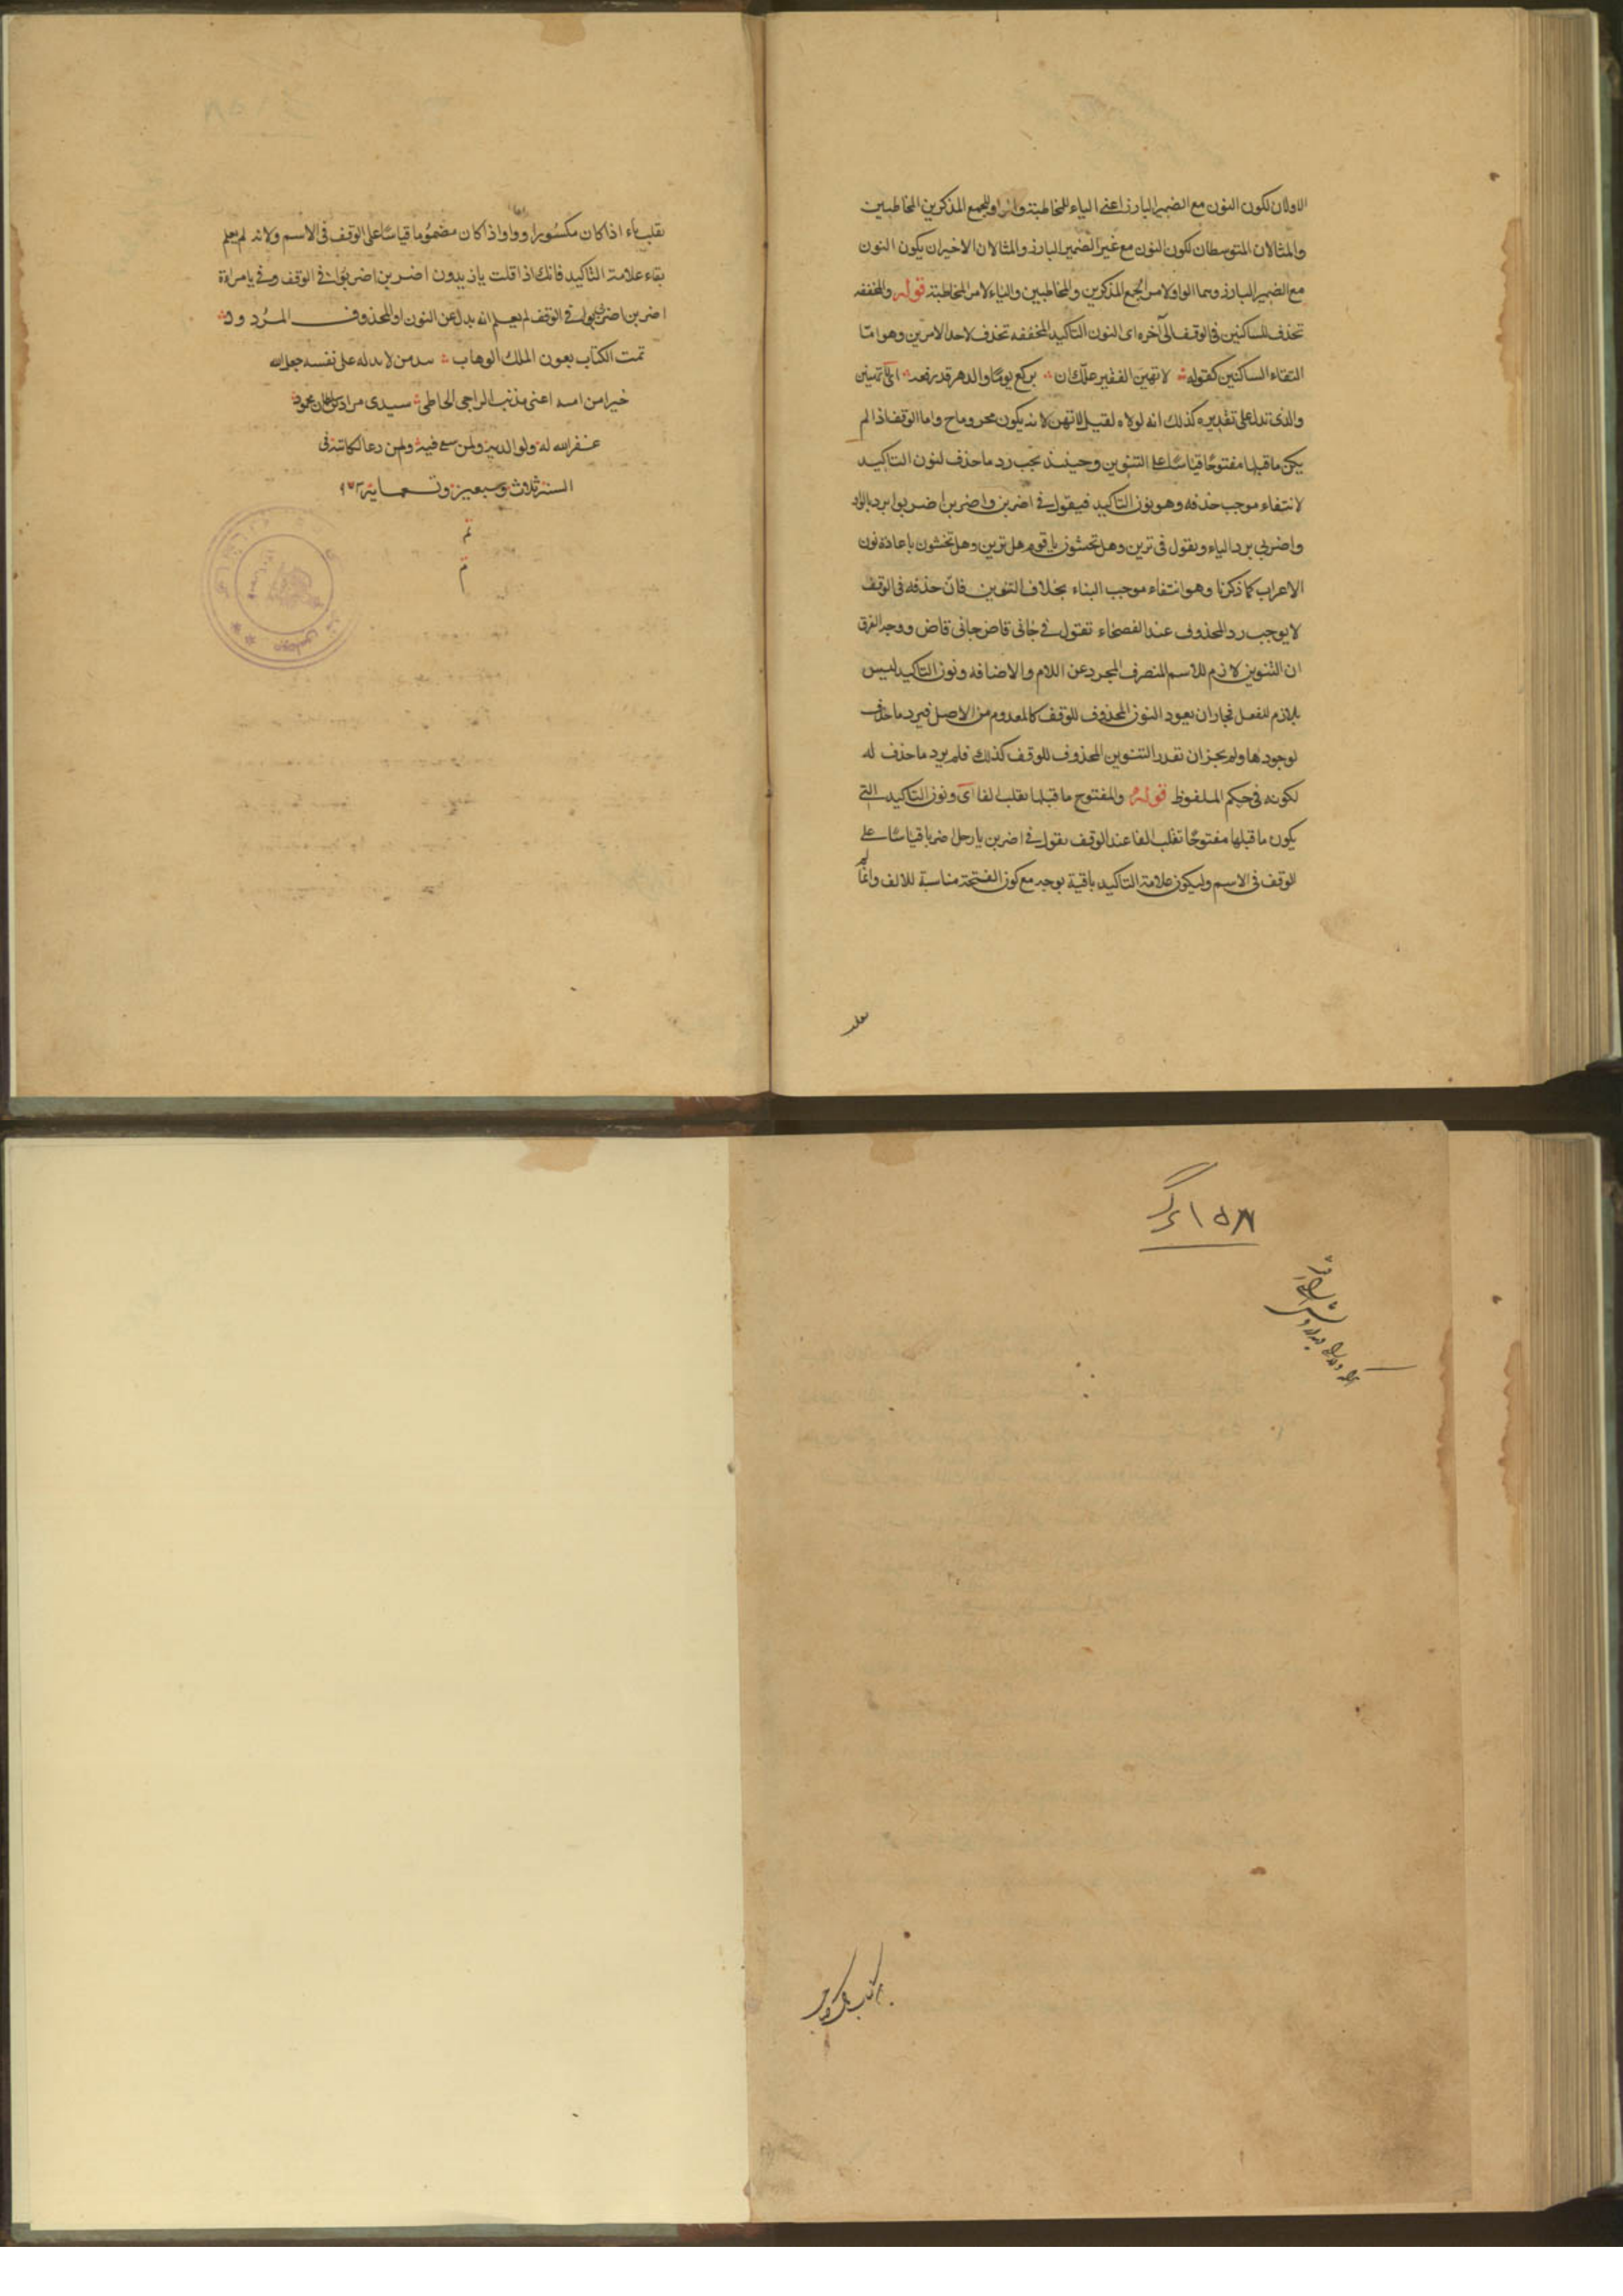 الاولان لكون النون مع الضمير البارز اعنى الياء للمخاطبة والواو للجمع المذكرين المخاطبين
والمثالان المتوسطان لكون النون مع غير الضمير البارز والمثالان الاخيران يكون النون
مع الضمير البارز وهما الواو لامر الجمع المذكرين والمخاطبين والياء لامر المخاطبة قوله والمخففه
تحذف للساكنين فى الوقف الى آخره اى النون التاكيد المخففه تحذف لاحد الامرين وهو امّا
التقاء الساكنين كقوله لا تهين الفقير علّك ان تركع يومًا والدهر قد رفعه اى لا تهينن
والذى تدل على تقديره كذلك انه لولاه لقيل لا تهن لانه يكون مجزوما ح واما الوقف اذا لم
يكن ما قبلها مفتوحًا قياسًا على التنوين وحينئذ يجب رد ما حذف لنون التاكيد
لانتفاء موجب حذفه وهو نون التاكيد فيقول فى اضربن واضربن اضربوا برد الواو
واضربى برد الياء ويقول فى ترين وهل تخشون يا قوم هل ترين وهل تخشون باعادة نون
الاعراب كما ذكرنا وهو انتفاء موجب البناء بخلاف التنوين فانّ حذفه فى الوقف
لا يوجب رد المحذوف عند الفصحاء تقول فى جانى قاض جانى قاض ووجه الفرق
ان التنوين لازم للاسم المنصرف المجرد عن اللام والاضافه ونون التاكيد ليس
بلازم للفعل فجاز ان يعود النون المحذوف للوقف كالمعدوم من الاصل فيرد ما حذف
لوجودها ولم يجز ان تقدر التنوين المحذوف للوقف كذلك فلم يرد ما حذف له
لكونه فى حكم الملفوظ قوله والمفتوح ما قبلها تقلب الفا اى ونون التاكيد التى
يكون ما قبلها مفتوحًا تقلب الفا عند الوقف تقول فى اضربن يا رجل اضربا قياسًا على
الوقف فى الاسم وليكون علامة التاكيد باقية بوجه مع كون الفتحة مناسبة للالف وانما لم
تقلب
تقلب ياء اذا كان مكسورا وواوا اذا كان مضموما قياسًا على الوقف فى الاسم ولانه لم يعلم
بقاء علامة التاكيد فانك اذا قلت يا زيدون اضربن اضربوا فى الوقف وفى يا مراة
اضربن اضربى فى الوقف لم يعلم انه بدل عن النون او المحذوف المردود
تمت الكتاب بعون الملك الوهاب من لا بد له على نفسه جعل الله
خيرا من امسه اعنى مذنب الراجى الخاطى سيدى مراد بن محمود
غفر الله له ولوالديه ولمن سع فيه ولمن دعا لكاتبه فى
السنة ثلاث وسبعين وتسعماية ٩٧٣
تم
تم
١٥٨